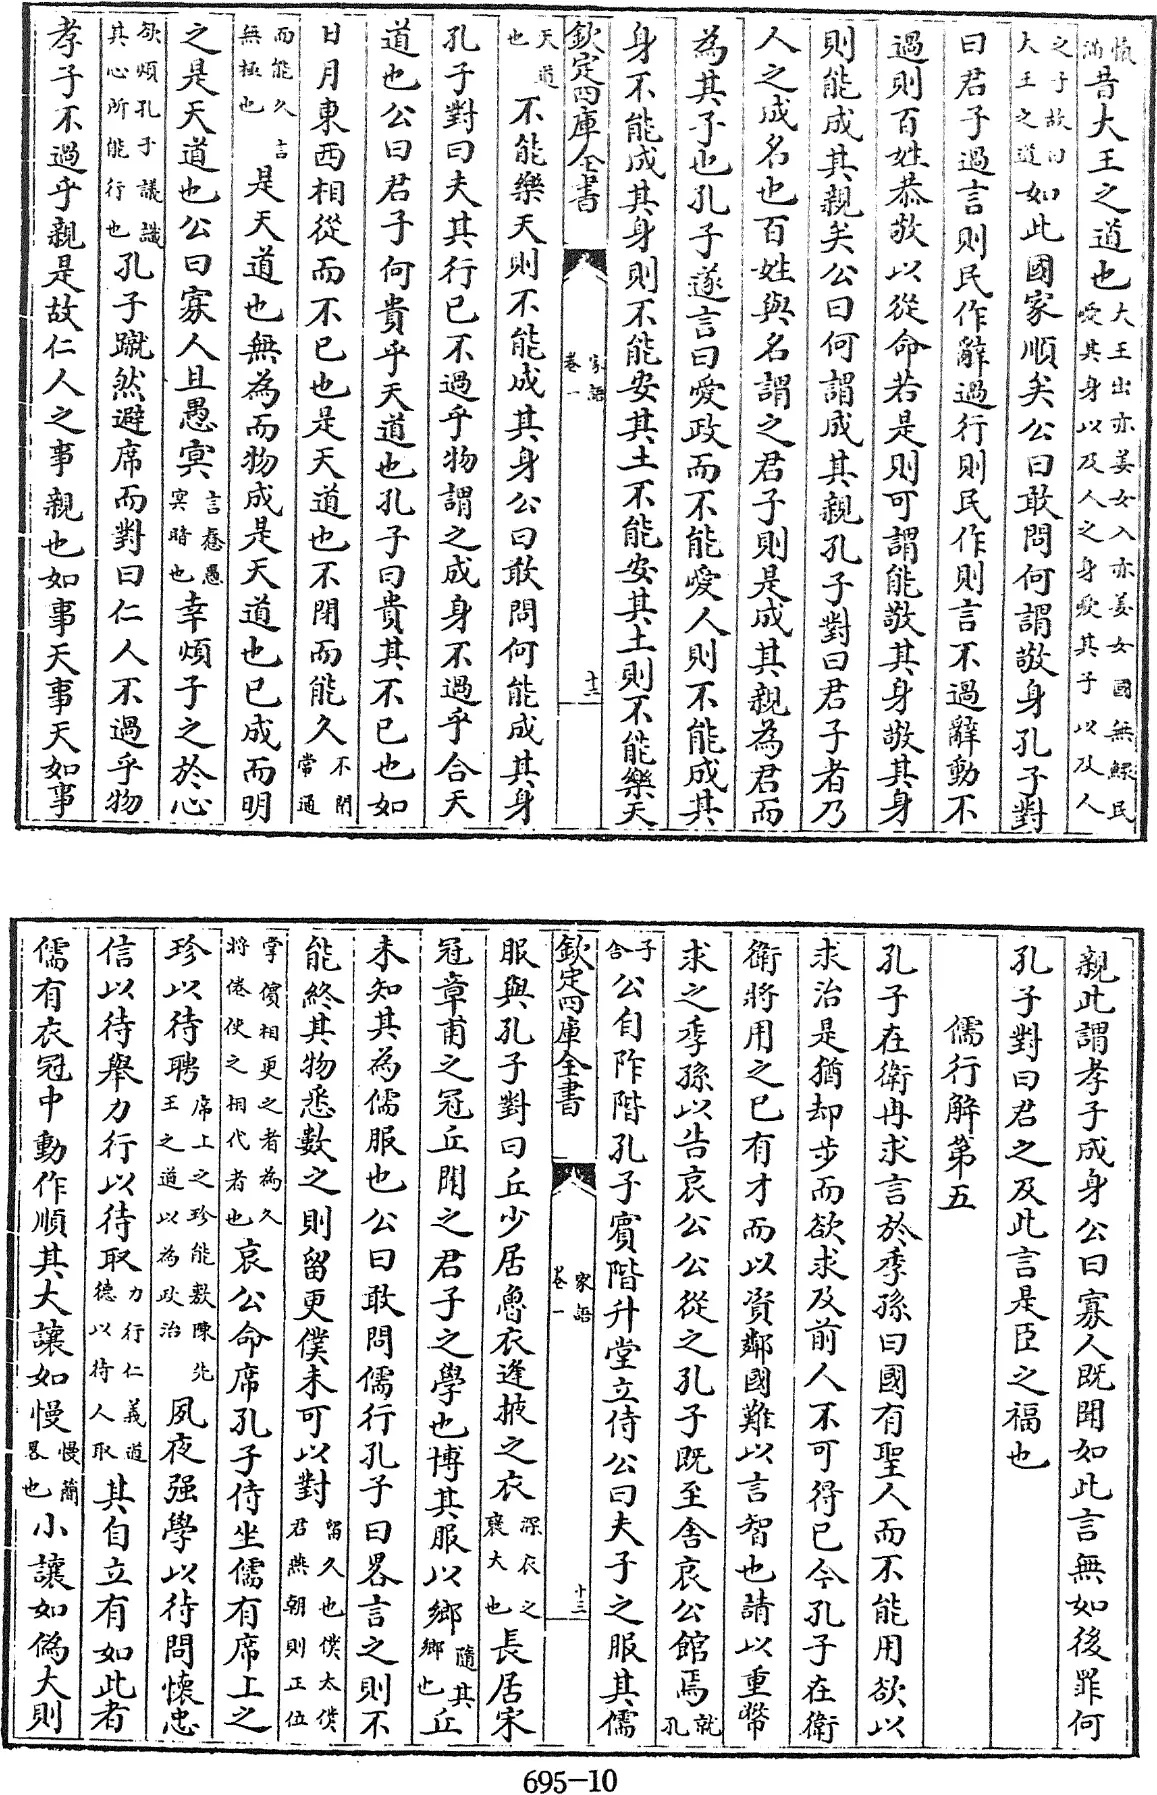 愾滿昔大王之道也大王出亦姜女入亦姜女國無鰥民愛其身以及人之身愛其子以及人
之子故曰大王之道如此國家順矣公曰敢問何謂敬身孔子對
曰君子過言則民作辭過行則民作則言不過辭動不
過則百姓恭敬以從命若是則可謂能敬其身敬其身
則能成其親矣公曰何謂成其親孔子對曰君子者乃
人之成名也百姓與名謂之君子則是成其親為君而
為其子也孔子遂言曰愛政而不能愛人則不能成其
身不能成其身則不能安其土不能安其土則不能樂天
欽定四庫全書 家語卷一 十二
天道也不能樂天則不能成其身公曰敢問何能成其身
孔子對曰夫其行已不過乎物謂之成身不過乎合天
道也公曰君子何貴乎天道也孔子曰貴其不已也如
日月東西相從而不已也是天道也不閉而能久不閉常通
而能久言無極也是天道也無為而物成是天道也已成而明
之是天道也公曰寡人且愚冥言惷愚冥暗也幸煩子之於心
欲煩孔子議識其心所能行也孔子蹴然避席而對曰仁人不過乎物
孝子不過乎親是故仁人之事親也如事天事天如事
親此謂孝子成身公曰寡人既聞如此言無如後罪何
孔子對曰君之及此言是臣之福也
儒行解第五
孔子在衛冉求言於季孫曰國有聖人而不能用欲以
求治是猶却步而欲求及前人不可得已今孔子在衛
衛將用之已有才而以資鄰國難以言智也請以重幣
求之季孫以告哀公公從之孔子既至舍哀公館焉就孔
子舍公自阼階孔子賓階升堂立侍公曰夫子之服其儒
欽定四庫全書 家語卷一 十三
服與孔子對曰丘少居魯衣逢掖之衣深衣之襃大也長居宋
冠章甫之冠丘聞之君子之學也博其服以鄉隨其鄉也丘
未知其為儒服也公曰敢問儒行孔子曰畧言之則不
能終其物悉數之則留更僕未可以對留久也僕太僕君燕朝則正位
掌儐相更之者為久將倦使之相代者也哀公命席孔子侍坐儒有席上之
珍以待聘席上之珍能敷陳先王之道以為政治夙夜强學以待問懷忠
信以待舉力行以待取力行仁義道德以待人取其自立有如此者
儒有衣冠中動作順其大讓如慢慢簡畧也小讓如偽大則
695-10